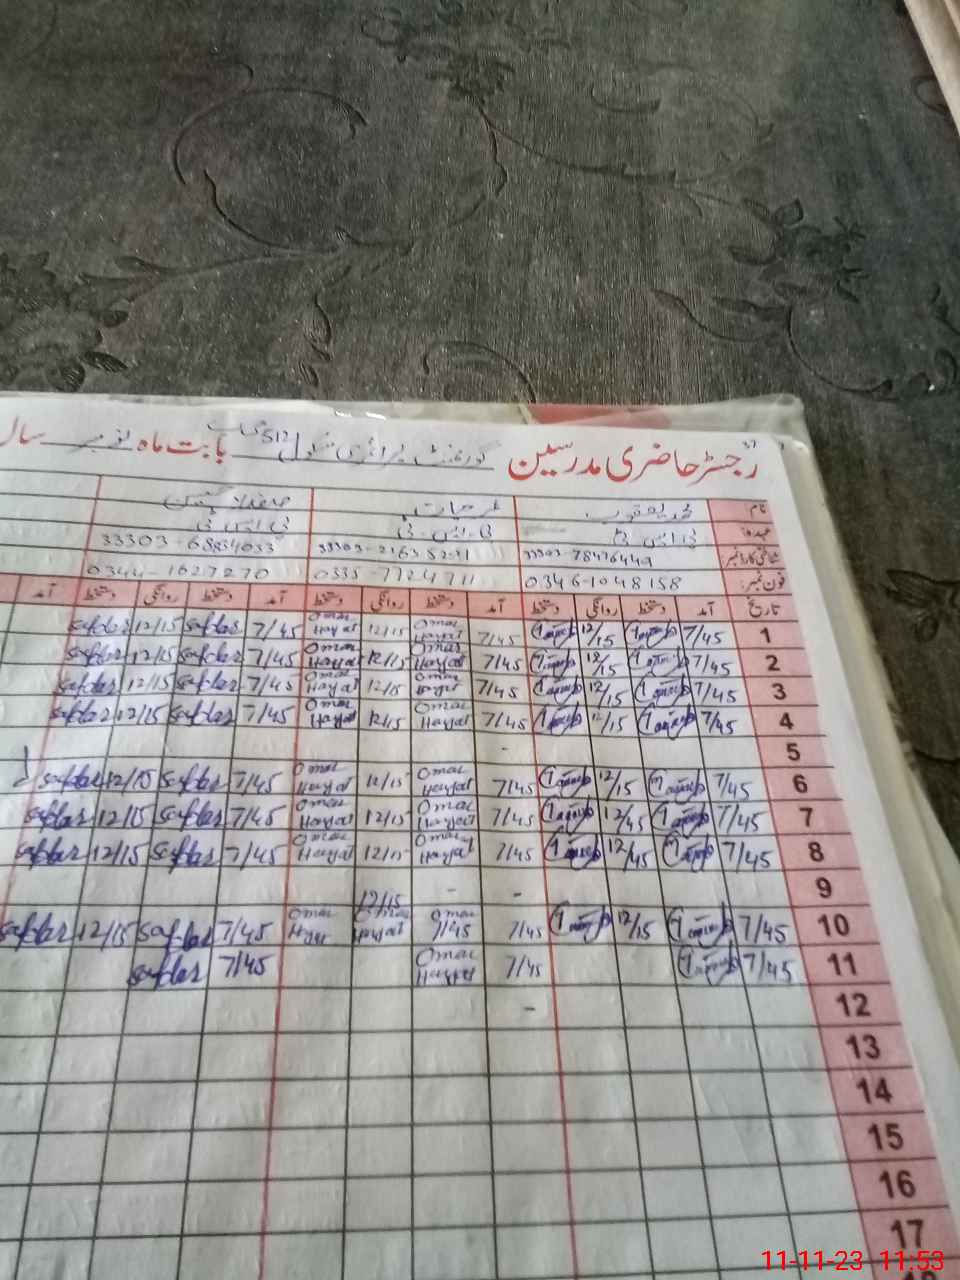 37
رجسٹر حاضری مدرسین گورنمنٹ پرائمری سکول 512 گ ب بابت ماہ نومبر سال
نام محمد یعقوب عمر حیات صفدر حسین
عہدہ پی ایس ٹی پی ایس ٹی پی ایس ٹی
شناختی کارڈ نمبر 33303-2163527-1 33303-6883403-3
فون نمبر: 0346-1048158 0335-7724711 0344-1627270
تاریخ آمد دستخط روانگی دستخط آمد دستخط روانگی دستخط آمد دستخط روانگی دستخط آمد
1 7/45 12/15 7/45 Omar Hayat 12/15 Omar Hayat 7/45 safdar 12/15 safdar
2 7/45 12/15 7/45 Omar Hayat 12/15 Omar Hayat 7/45 safdar 12/15 safdar
3 7/45 12/15 7/45 Omar Hayat 12/15 Omar Hayat 7/45 safdar 12/15 safdar
4 7/45 12/15 7/45 Omar Hayat 12/15 Omar Hayat 7/45 safdar 12/15 safdar
5 -
6 7/45 12/15 7/45 Omar Hayat 12/15 Omar Hayat 7/45 safdar 12/15 safdar
7 7/45 12/45 7/45 Omar Hayat 12/15 Omar Hayat 7/45 safdar 12/15 safdar
8 7/45 12/45 7/45 Omar Hayat 12/15 Omar Hayat 7/45 safdar 12/15 safdar
9 - -
10 7/45 12/15 7/45 Omar 7/45 12/15 Omar Hayat Omar Hayat 7/45 safdar 12/15 safdar
11 7/45 7/45 Omar Hayat 7/45 safdar
12 -
13
14
15
16
17
11-11-23 11:53